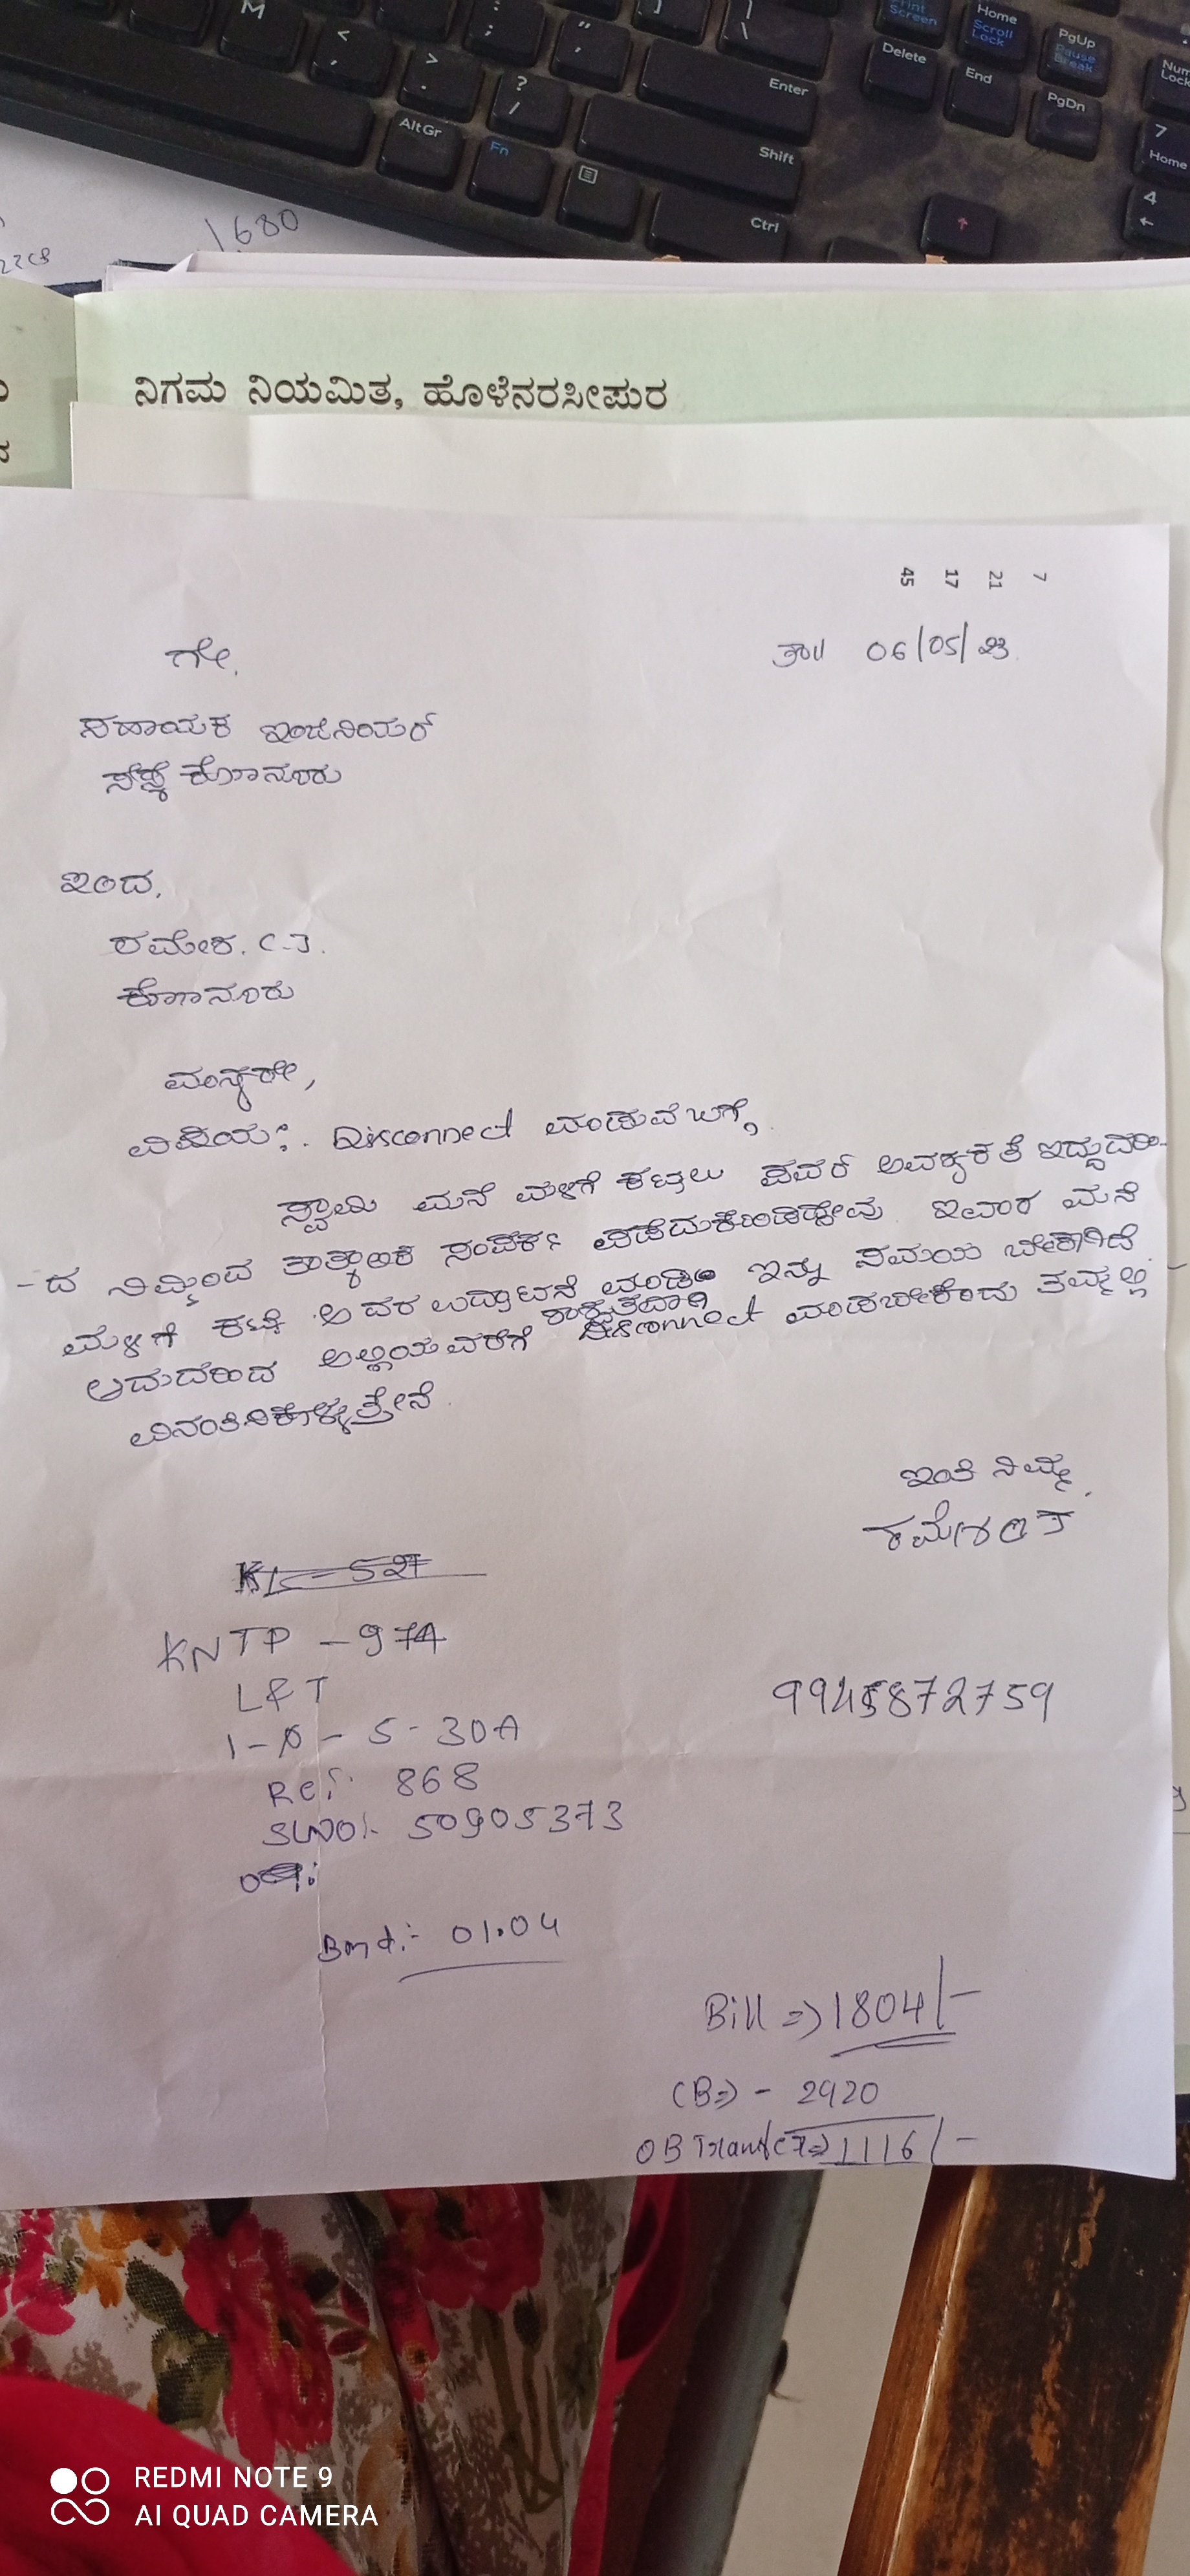 M
<
,
>
.
?
/
:
;
"
'
]
|
\
Enter
Shift
Ctrl
AltGr
Fn
Print
Screen
Home
Scroll
Lock
PgUp
Pause
Break
Delete
End
PgDn
Num
Lock
7
Home
4
1680
ನಿಗಮ ನಿಯಮಿತ, ಹೊಳೆನರಸೀಪುರ
45 17 21 7
ಗೇ,
ತಾ॥ 06/05/23
ಸಹಾಯಕ ಇಂಜಿನಿಯರ್
ಸೆಸ್ಕ್ ಕೊಣನೂರು
ಇಂದ,
ರಮೇಶ. C.J.
ಕೊಣನೂರು
ಮಾನ್ಯರೇ,
ವಿಷಯ:. Disconnect ಮಾಡುವ ಬಗ್ಗೆ
ಸ್ವಾಮಿ ಮನೆ ಮಳಿಗೆ ಕಟ್ಟಲು ಪವರ್ ಅವಶ್ಯಕತೆ ಇದ್ದುದರಿ-
-ದ ನಿಮ್ಮಿಂದ ತಾತ್ಕಾಲಿಕ ಸಂಪರ್ಕ ಪಡೆದುಕೊಂಡಿದ್ದೇವು ಇವಾಗ ಮನೆ
ಮಳಿಗೆ ಕಟ್ಟಿ ಅವರ ಉದ್ಘಾಟನೆ ಮಾಡಲು ಇನ್ನು ಸಮಯ ಬೇಕಾಗಿದೆ
ಆದುದರಿಂದ ಅಲ್ಲಿಯವರೆಗೆ ಶಾಶ್ವತವಾಗಿ Disconnect ಮಾಡಬೇಕೆಂದು ತಮ್ಮಲ್ಲಿ
ವಿನಂತಿಸಿಕೊಳ್ಳುತ್ತೇನೆ.
ಇಂತಿ ನಿಮ್ಮ
ರಮೇಶ C J
KNTP - 974
L&T
9945872759
1-Ø - 5-30A
Ref: 868
SLNO:- 50905373
Bmd:- 01.04
Bill => 1804/-
CB=> - 2920
OB Transfer=> 1116/-
REDMI NOTE 9
AI QUAD CAMERA